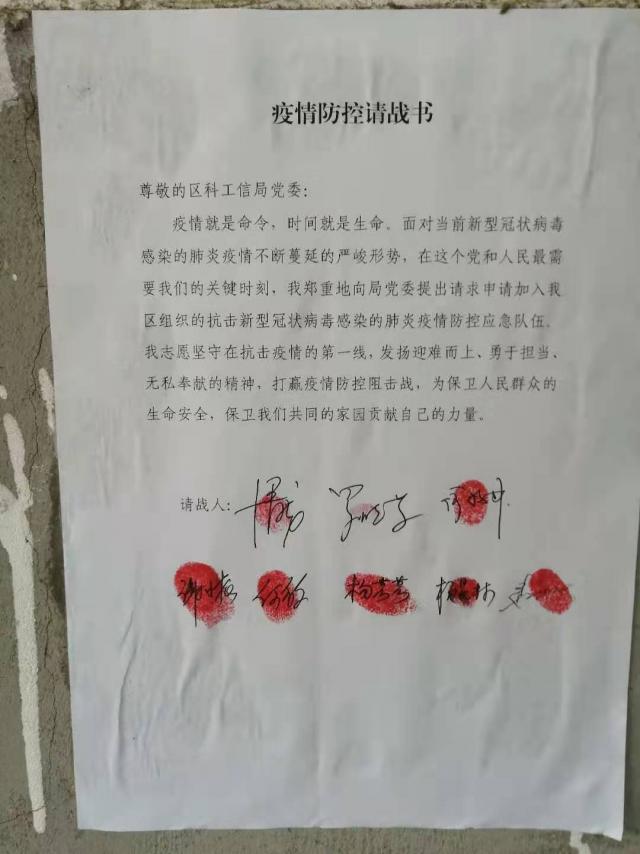 疫情防控请战书
尊敬的区科工信局党委：
疫情就是命令，时间就是生命。面对当前新型冠状病毒
感染的肺炎疫情不断蔓延的严峻形势，在这个党和人民最需
要我们的关键时刻，我郑重地向局党委提出请求申请加入我
区组织的抗击新型冠状病毒感染的肺炎疫情防控应急队伍。
我志愿坚守在抗击疫情的第一线，发扬迎难而上、勇于担当、
无私奉献的精神，打赢疫情防控阻击战，为保卫人民群众的
生命安全，保卫我们共同的家园贡献自己的力量。
请战人：